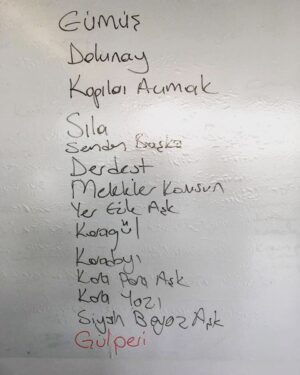 Gümüş
Dolunay
Kapıları Açmak
Sıla
Senden Başka
Derdest
Melekler Korusun
Yer Gök Aşk
Karagül
Karadayı
Kara Para Aşk
Kara Yazı
Siyah Beyaz Aşk
Gülperi